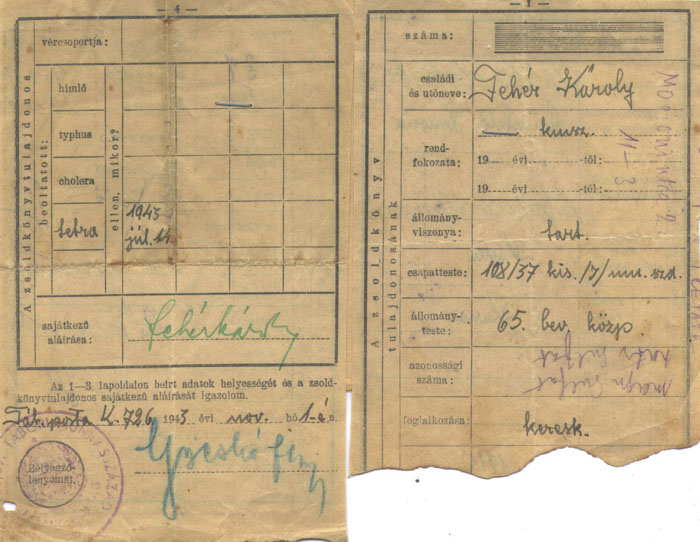 — 4 —
A zsoldkönyvtulajdonos
beoltatott:
ellen, mikor?
vércsoportja:
himlő
typhus
cholera
tetra 1943 júl. 14.
sajátkezű
aláírása: Fehér Károly
Az 1—3. lapoldalon beírt adatok helyességét és a zsold-
könyvtulajdonos sajátkezű aláírását igazolom.
Táb. posta K. 726, 1943 évi nov. hó 1-é n.
Bélyegző-
lenyomat.
SZÁZAD
— 1 —
A zsoldkönyv
tulajdonosának
száma:
családi
és utóneve: Fehér Károly
— kmsz.
rend-
fokozata: 19 évi -től:
19 évi -től:
állomány-
viszonya: tart.
csapatteste: 108/37 kis. /7/ mu. szd.
állomány-
teste: 65. bev. közp.
azonossági
száma:
foglalkozása: keresk.
11-3